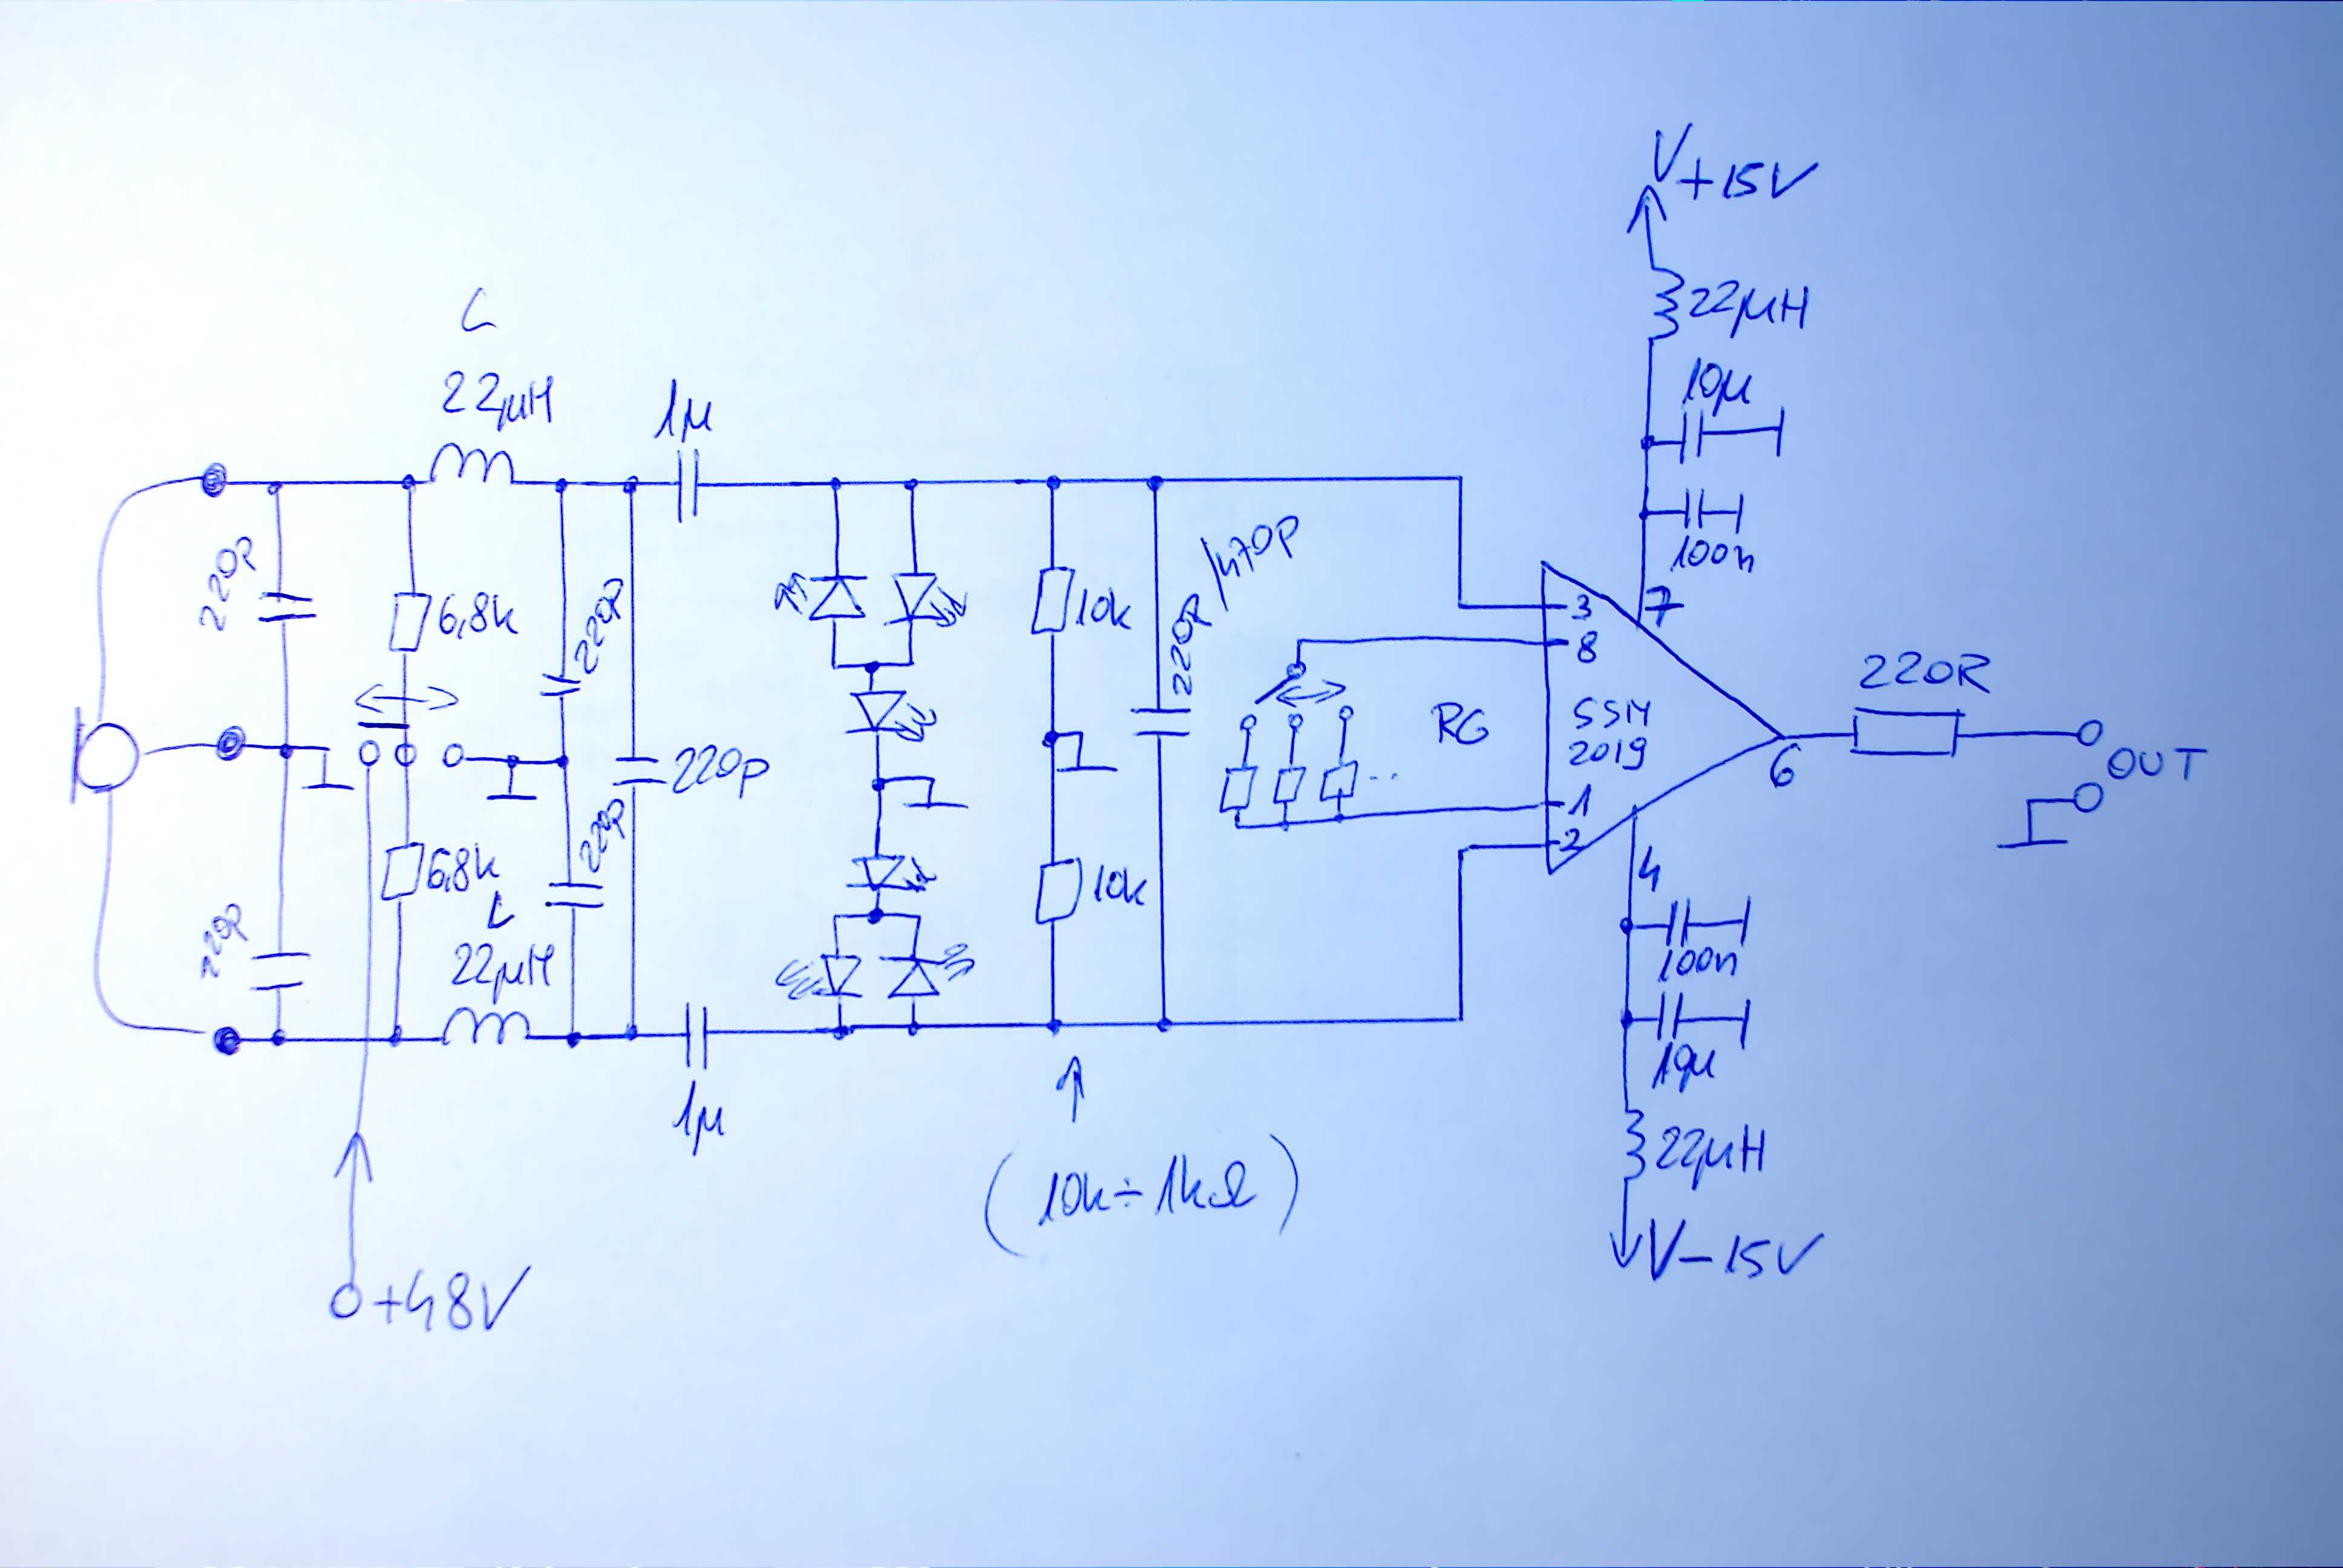 V+15V
22µH
10µ
100n
L
22µH
1µ
220p
6,8k
220p
220p
10k
220p/470p
3
8
7
SSM
2019
RG
1
2
4
6
220R
OUT
220p
6,8k
220p
L
22µH
1µ
10k
(10k÷1kΩ)
100n
10µ
22µH
V-15V
+48V